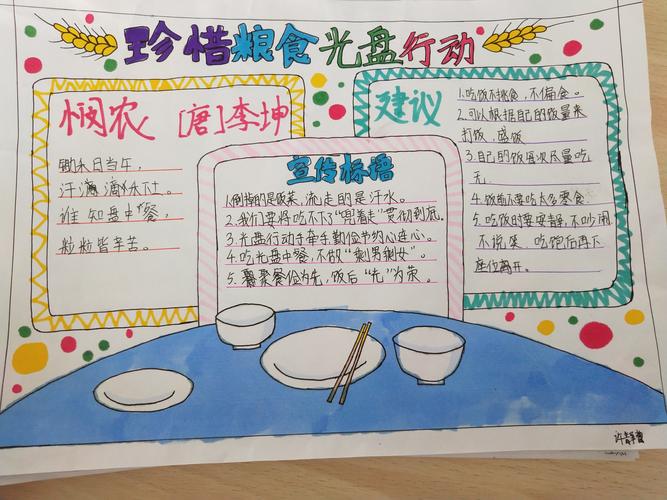 珍惜粮食光盘行动
悯农 [唐]李坤
锄禾日当午，
汗滴禾下土。
谁知盘中餐，
粒粒皆辛苦。
宣传标语
1.倒掉的是饭菜，流走的是汗水。
2.我们要将吃不了"兜着走"贯彻到底。
3.光盘行动手牵手，勤俭节约心连心。
4.吃光盘中餐，不做"剩男剩女"。
5.聚餐俭为先，饭后"光"为荣。
建议
1.吃饭不挑食，不偏食。
2.可以根据自己的饭量来
打饭，盛饭
3.自己的饭层次尽量吃
完
4.饭前不要吃太多零食
5.吃饭时要安静，不吵闹
不说笑，吃饱后再下
座位离开。